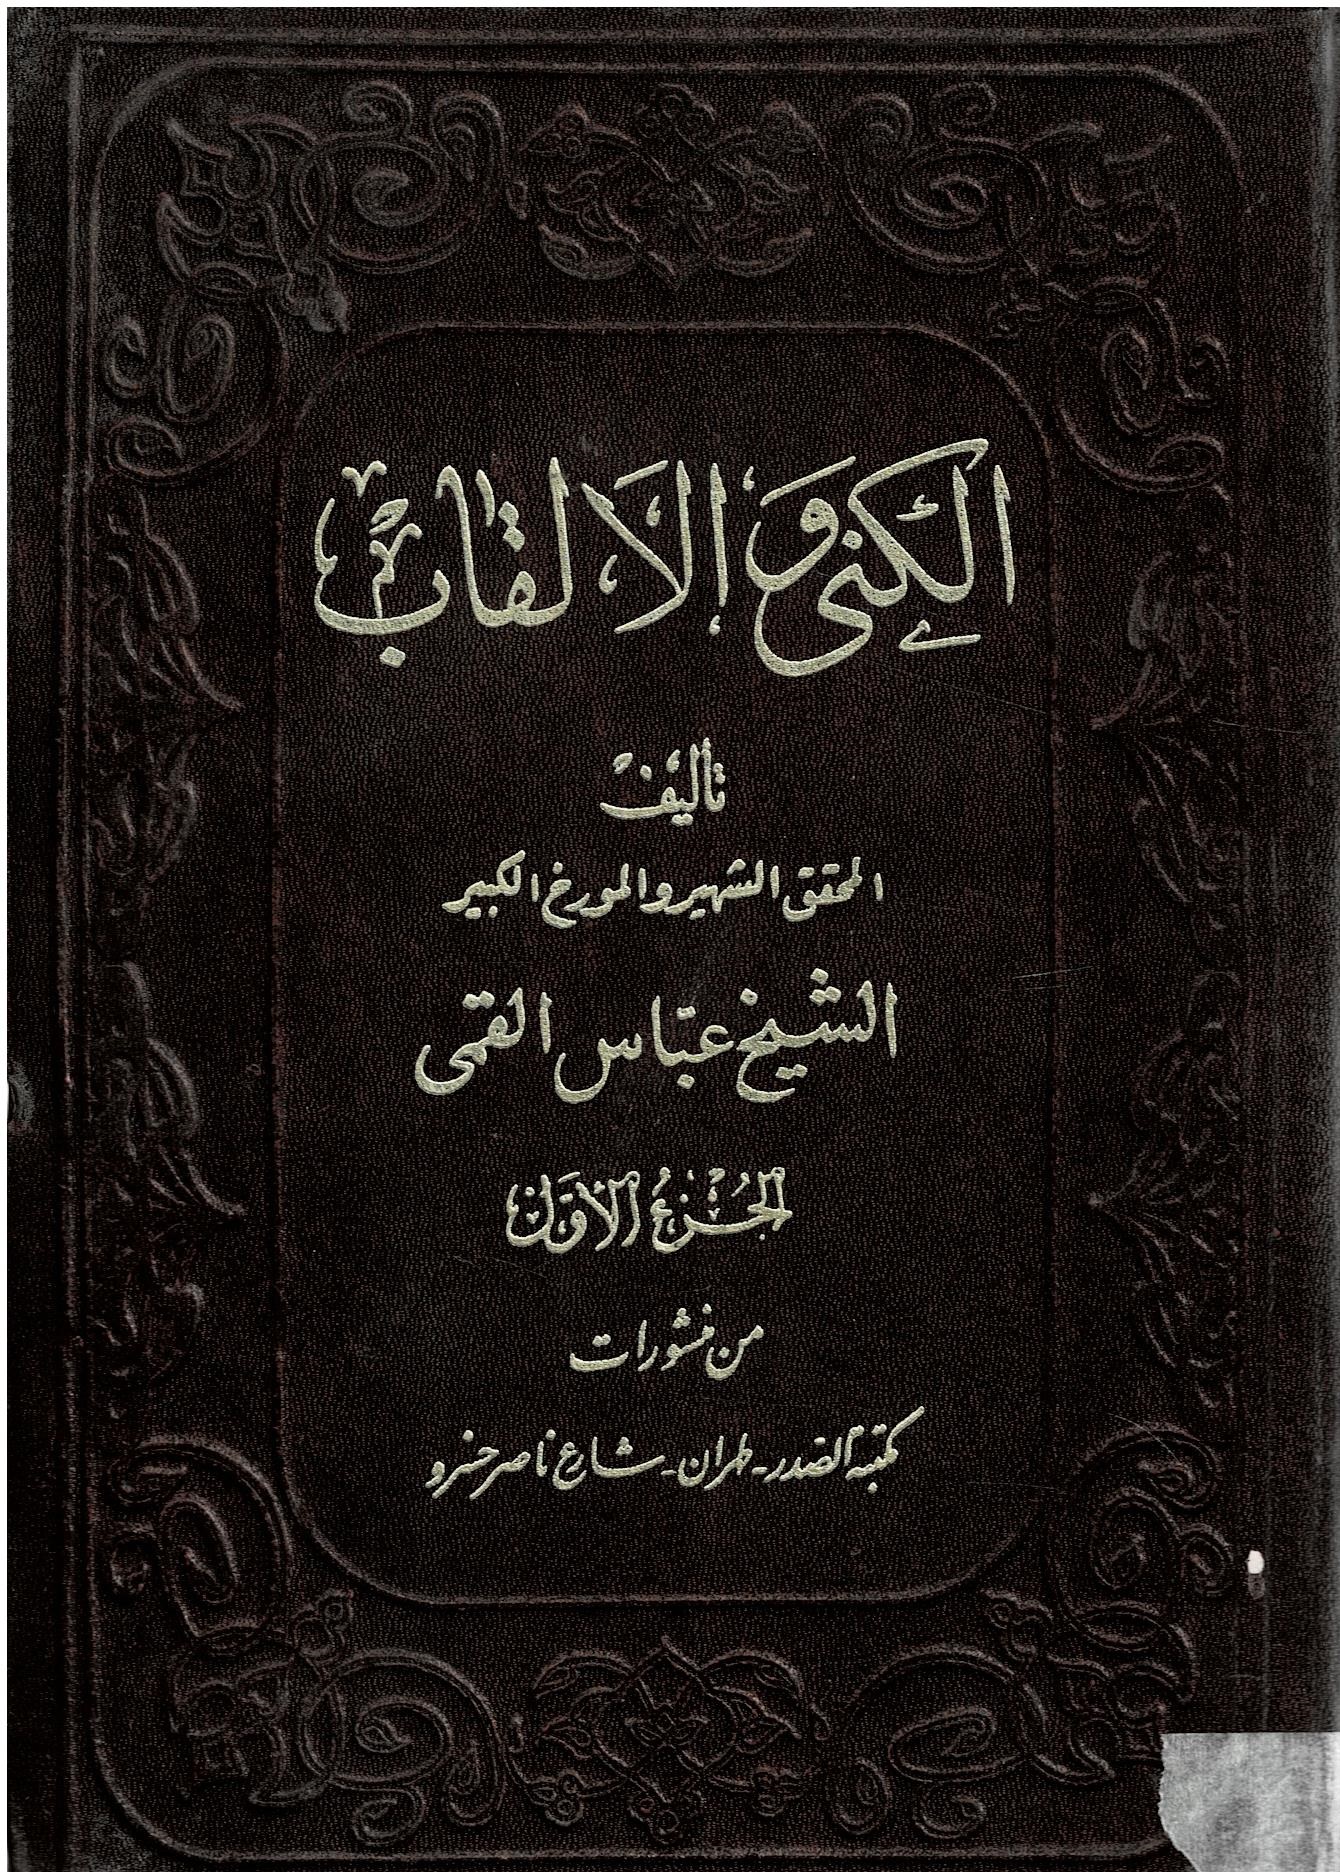 الكنى والالقاب
تأليف
المحقق الشهير والمورخ الكبير
الشيخ عباس القمى
الجزء الأول
من منشورات
مكتبة الصدر - طهران - شارع ناصر خسرو